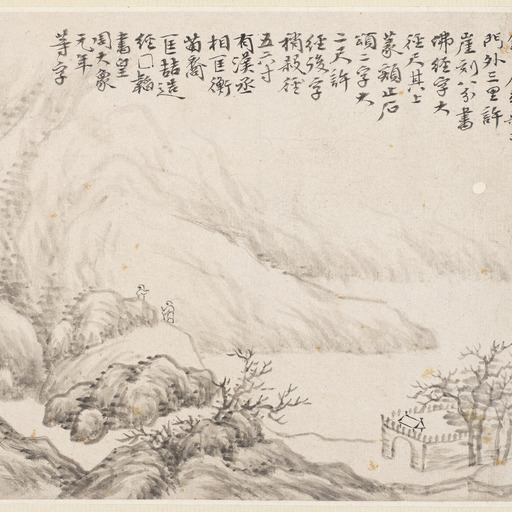 門外三里許
崖刻八分書
佛經字大
徑尺其上
蒙額止石
頌二字大
二尺許
經後字
稍殺徑
五六寸
有漢丞
相匡衡
苗裔
匡喆造
經□韜
書皇
周大象
元年
等字